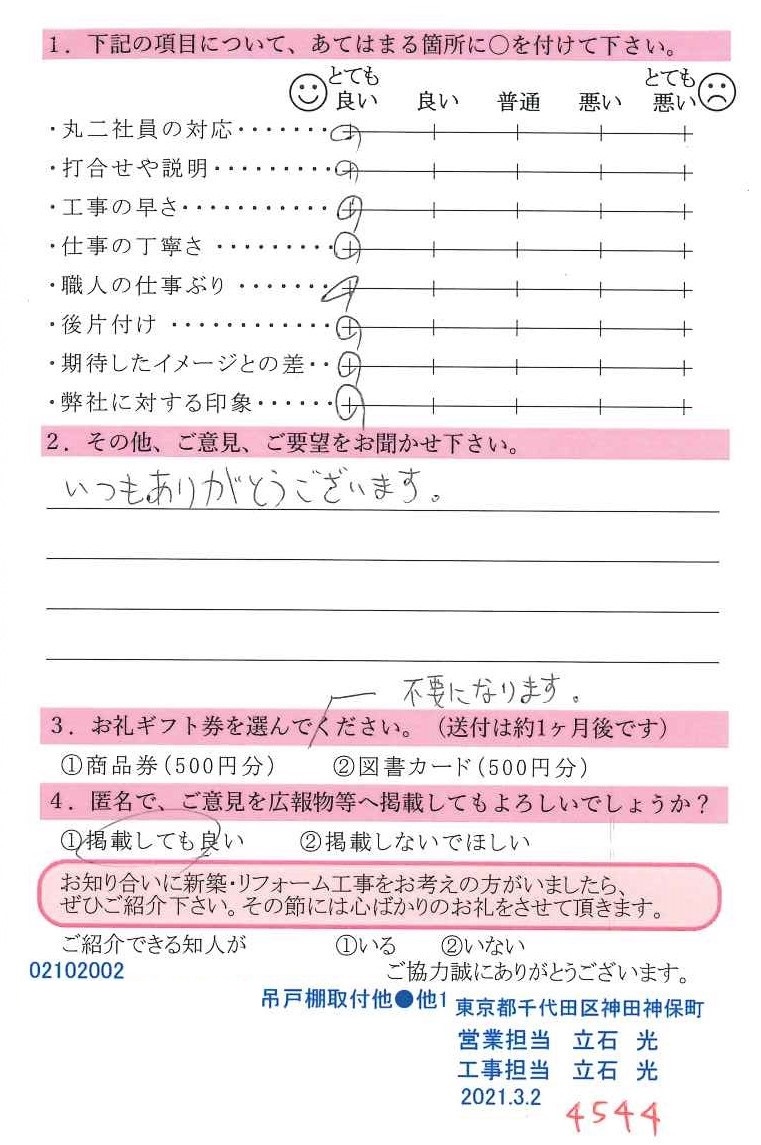 1．下記の項目について、あてはまる箇所に○を付けて下さい。
とても良い 良い 普通 悪い とても悪い
・丸二社員の対応・・・・・・・
・打合せや説明・・・・・・・・・
・工事の早さ・・・・・・・・・・・
・仕事の丁寧さ・・・・・・・・・
・職人の仕事ぶり・・・・・・・
・後片付け・・・・・・・・・・・・
・期待したイメージとの差・・
・弊社に対する印象・・・・・・
2．その他、ご意見、ご要望をお聞かせ下さい。
いつもありがとうございます。
不要になります。
3．お礼ギフト券を選んでください。（送付は約1ヶ月後です）
①商品券（500円分） ②図書カード（500円分）
4．匿名で、ご意見を広報物等へ掲載してもよろしいでしょうか？
①掲載しても良い ②掲載しないでほしい
お知り合いに新築・リフォーム工事をお考えの方がいましたら、
ぜひご紹介下さい。その節には心ばかりのお礼をさせて頂きます。
ご紹介できる知人が ①いる ②いない
02102002 ご協力誠にありがとうございます。
吊戸棚取付他●他1 東京都千代田区神田神保町
営業担当 立石 光
工事担当 立石 光
2021.3.2
4544